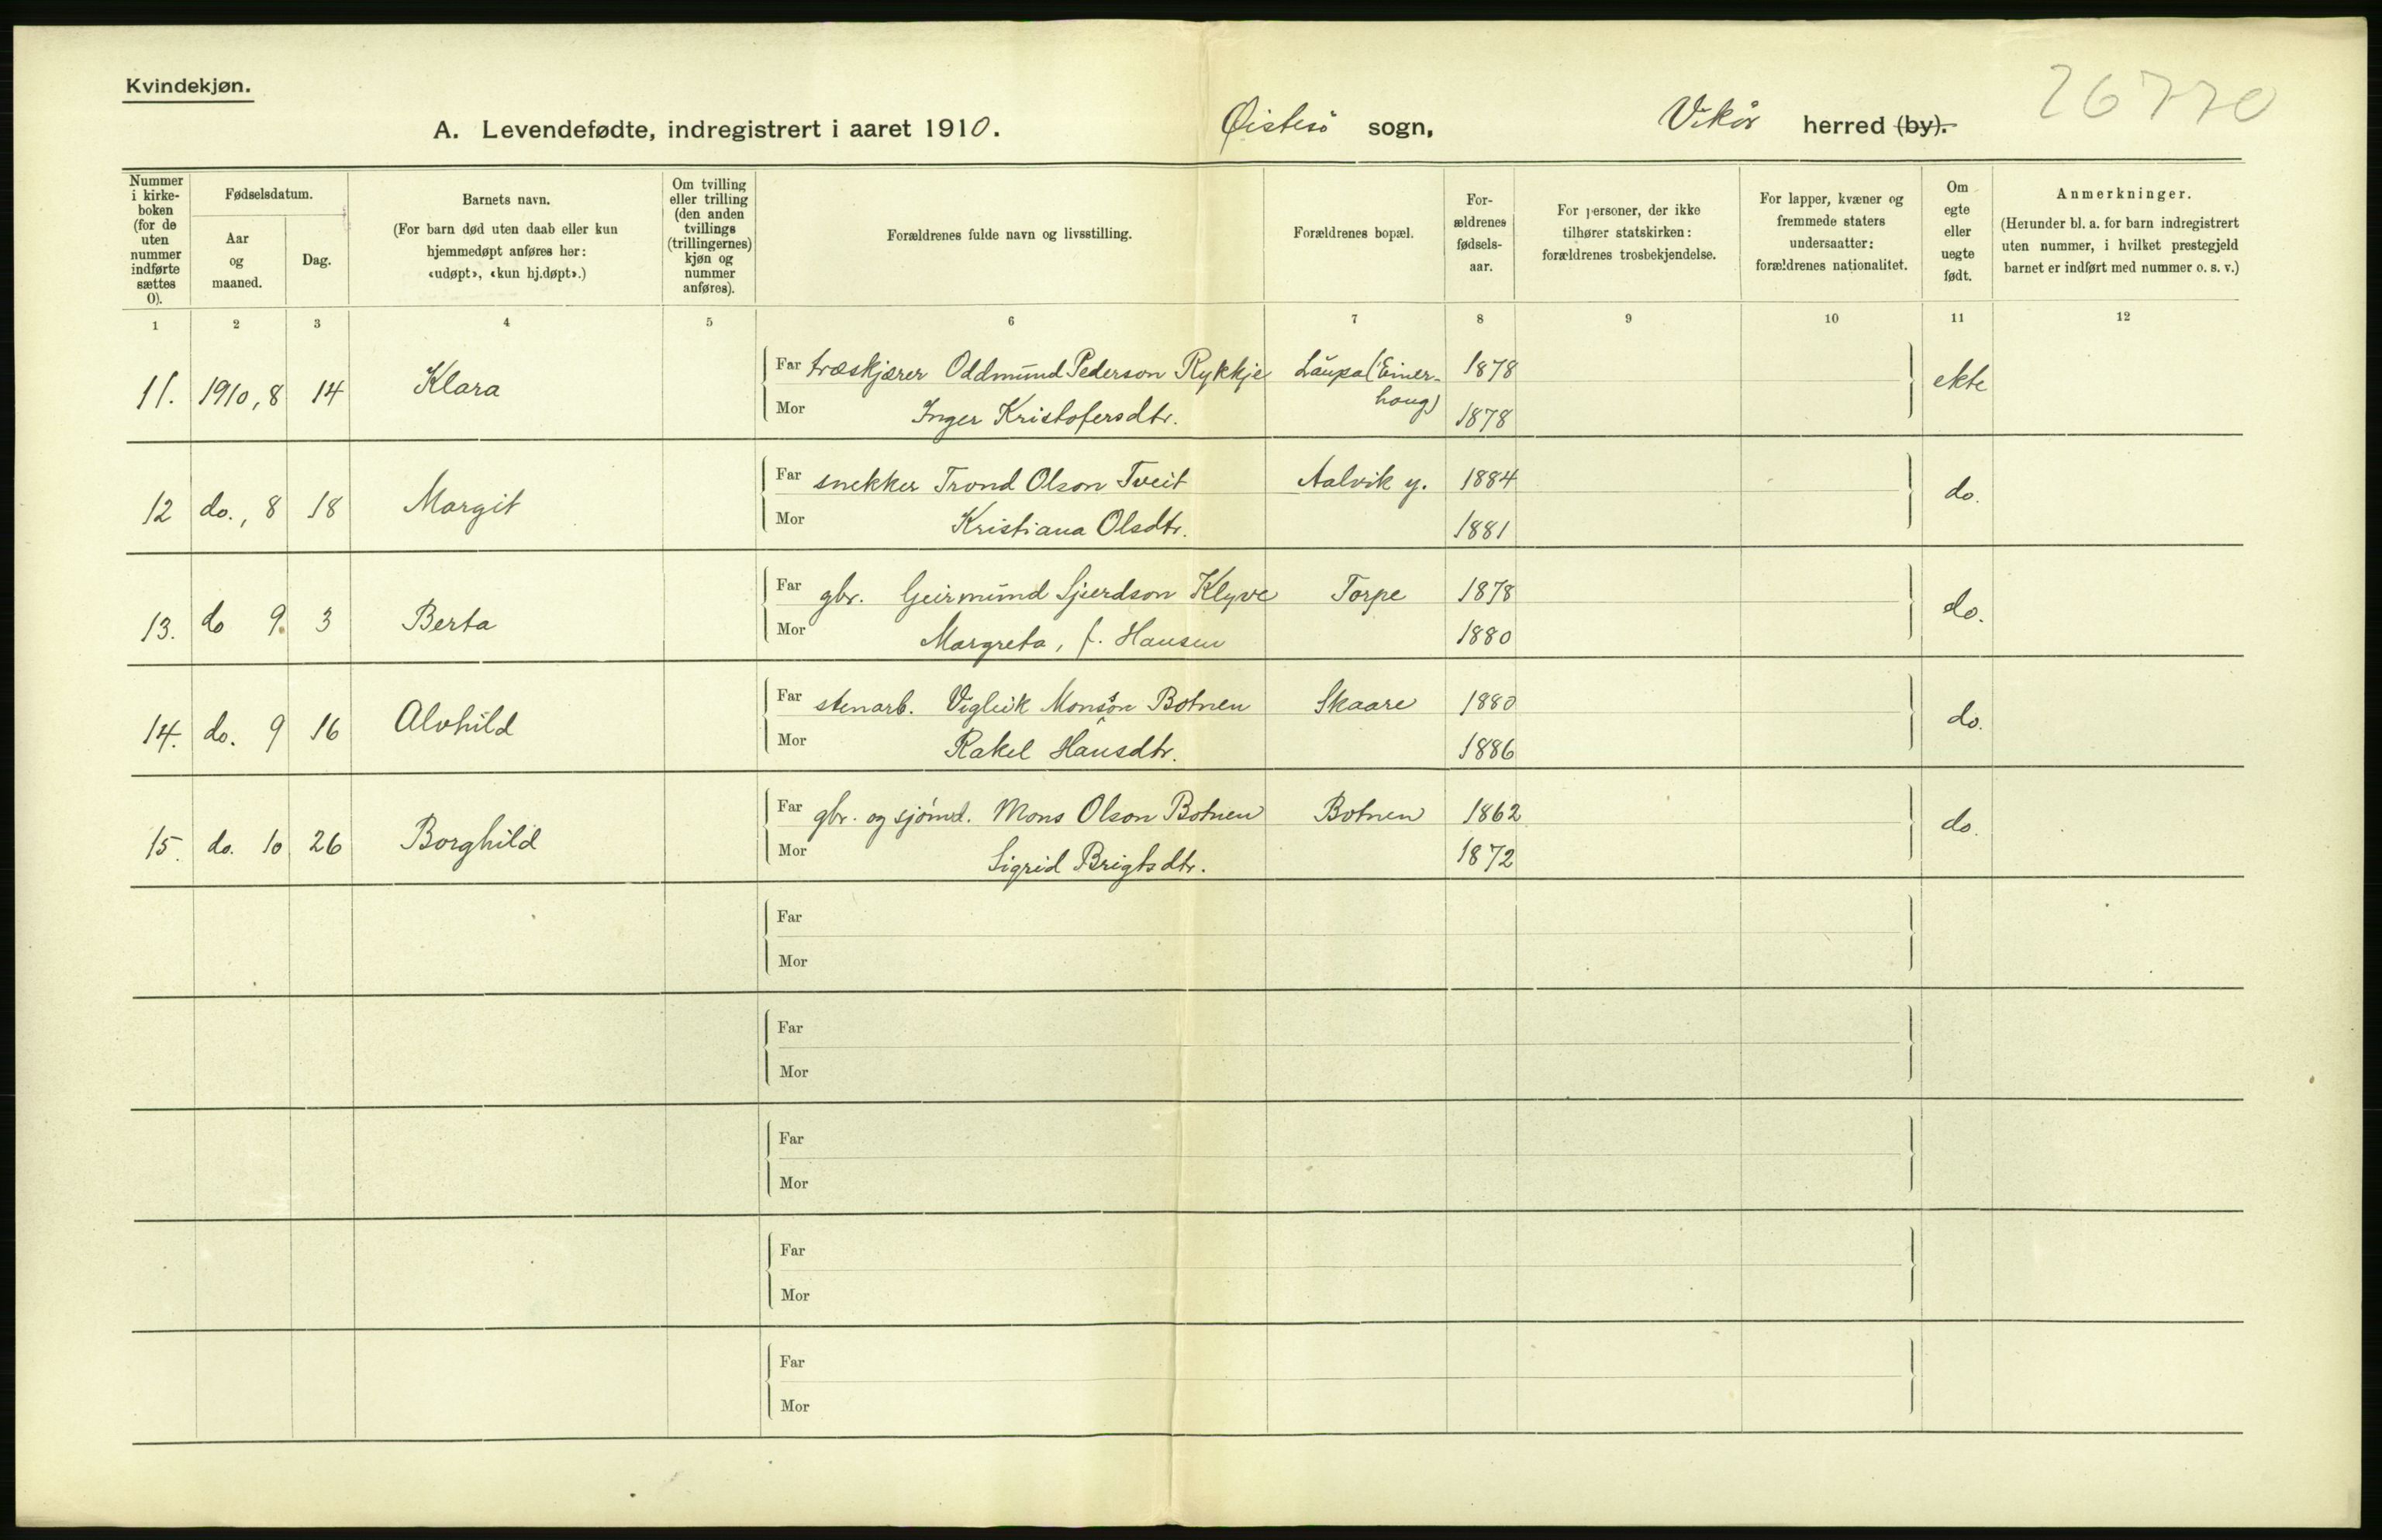 Kvindekjøn.
26770
A. Levendefødte, indregistrert i aaret 1910. Øistesö sogn, Vikör herred (by).
Nummer i kirke-boken (for de uten nummer indførte sættes 0).
Fødselsdatum.
Aar og maaned.
Dag.
Barnets navn.
(For barn død uten daab eller kun hjemmedøpt anføres her: «udøpt», «kun hj.døpt».)
Om tvilling eller trilling (den anden tvillings (trillingernes) kjøn og nummer anføres).
Forældrenes fulde navn og livsstilling.
Forældrenes bopæl.
For-ældrenes fødsels-aar.
For personer, der ikke tilhører statskirken: forældrenes trosbekjendelse.
For lapper, kvæner og fremmede staters undersaatter: forældrenes nationalitet.
Om egte eller uegte født.
Anmerkninger.
(Herunder bl. a. for barn indregistrert uten nummer, i hvilket prestegjeld barnet er indført med nummer o. s. v.)
1 2 3 4 5 6 7 8 9 10 11 12
11. 1910, 8 14 Klara Far træskjærer Oddmund Pederson Rykkje Laupa (Einer-haug) 1878 ekte
Mor Inger Kristofersdtr. 1878
12 do., 8 18 Margit Far snekker Trond Olson Tveit Aalvik y. 1884 do.
Mor Kristiana Olsdtr. 1881
13. do 9. 3 Berta Far gbr. Geirmund Sjurdson Klyve Torpe 1878 do.
Mor Margreta, f. Hansen 1880
14. do. 9 16 Alvhild Far stenarb. Vigleik Monsson Botnen Skaare 1880 do.
Mor Rakel Hansdtr. 1886
15. do. 10 26 Borghild Far gbr. og sjömd. Mons Olson Botnen Botnen 1862 do.
Mor Sigrid Brigtsdtr. 1872
Far
Mor
Far
Mor
Far
Mor
Far
Mor
Far
Mor